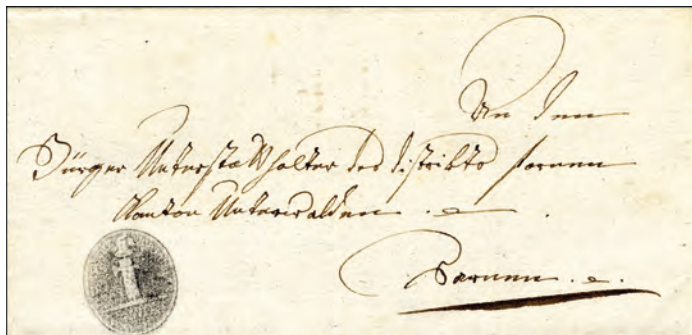 An den
Bürger Unterstatthalter des Distrikts Sarnen
Canton Unterwalden
Sarnen